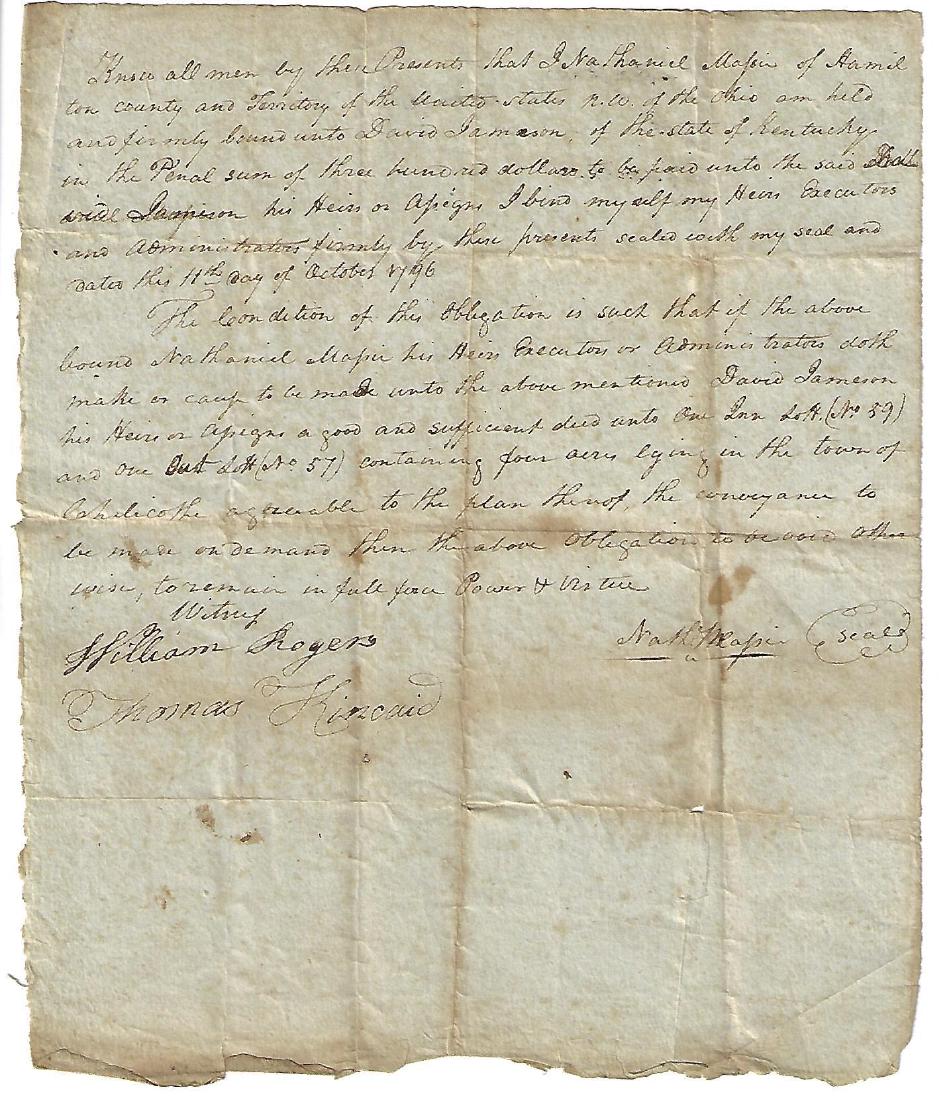 Know all men by these Presents that I Nathaniel Massie of Hamil
ton county and Territory of the United states N.W. of the Ohio am held
and firmly bound unto David Jameson, of the state of Kentucky
in the Penal sum of three hundred dollars to be paid unto the said Da
vid Jamison his Heirs or Assigns I bind myself my Heirs Executors
and Administrators firmly by these presents sealed with my seal and
dated this 11th Day of October 1796
The Condition of this Obligation is such that if the above
bound Nathaniel Massie his Heirs Executors or Administrators doth
make or cause to be made unto the above mentioned David Jameson
his Heirs or Assigns a good and sufficient deed unto One Inn Lott (No 59)
and One Out Lott (No 57) containing four acres lying in the town of
Chelicothe agreeable to the plan thereof, the conveyance to
be made on demand then the above Obligation to be void other
wise, to remain in full force Power & Virtue
Witness
William Rogers
Nathl Massie Seal
Thomas Kincaid